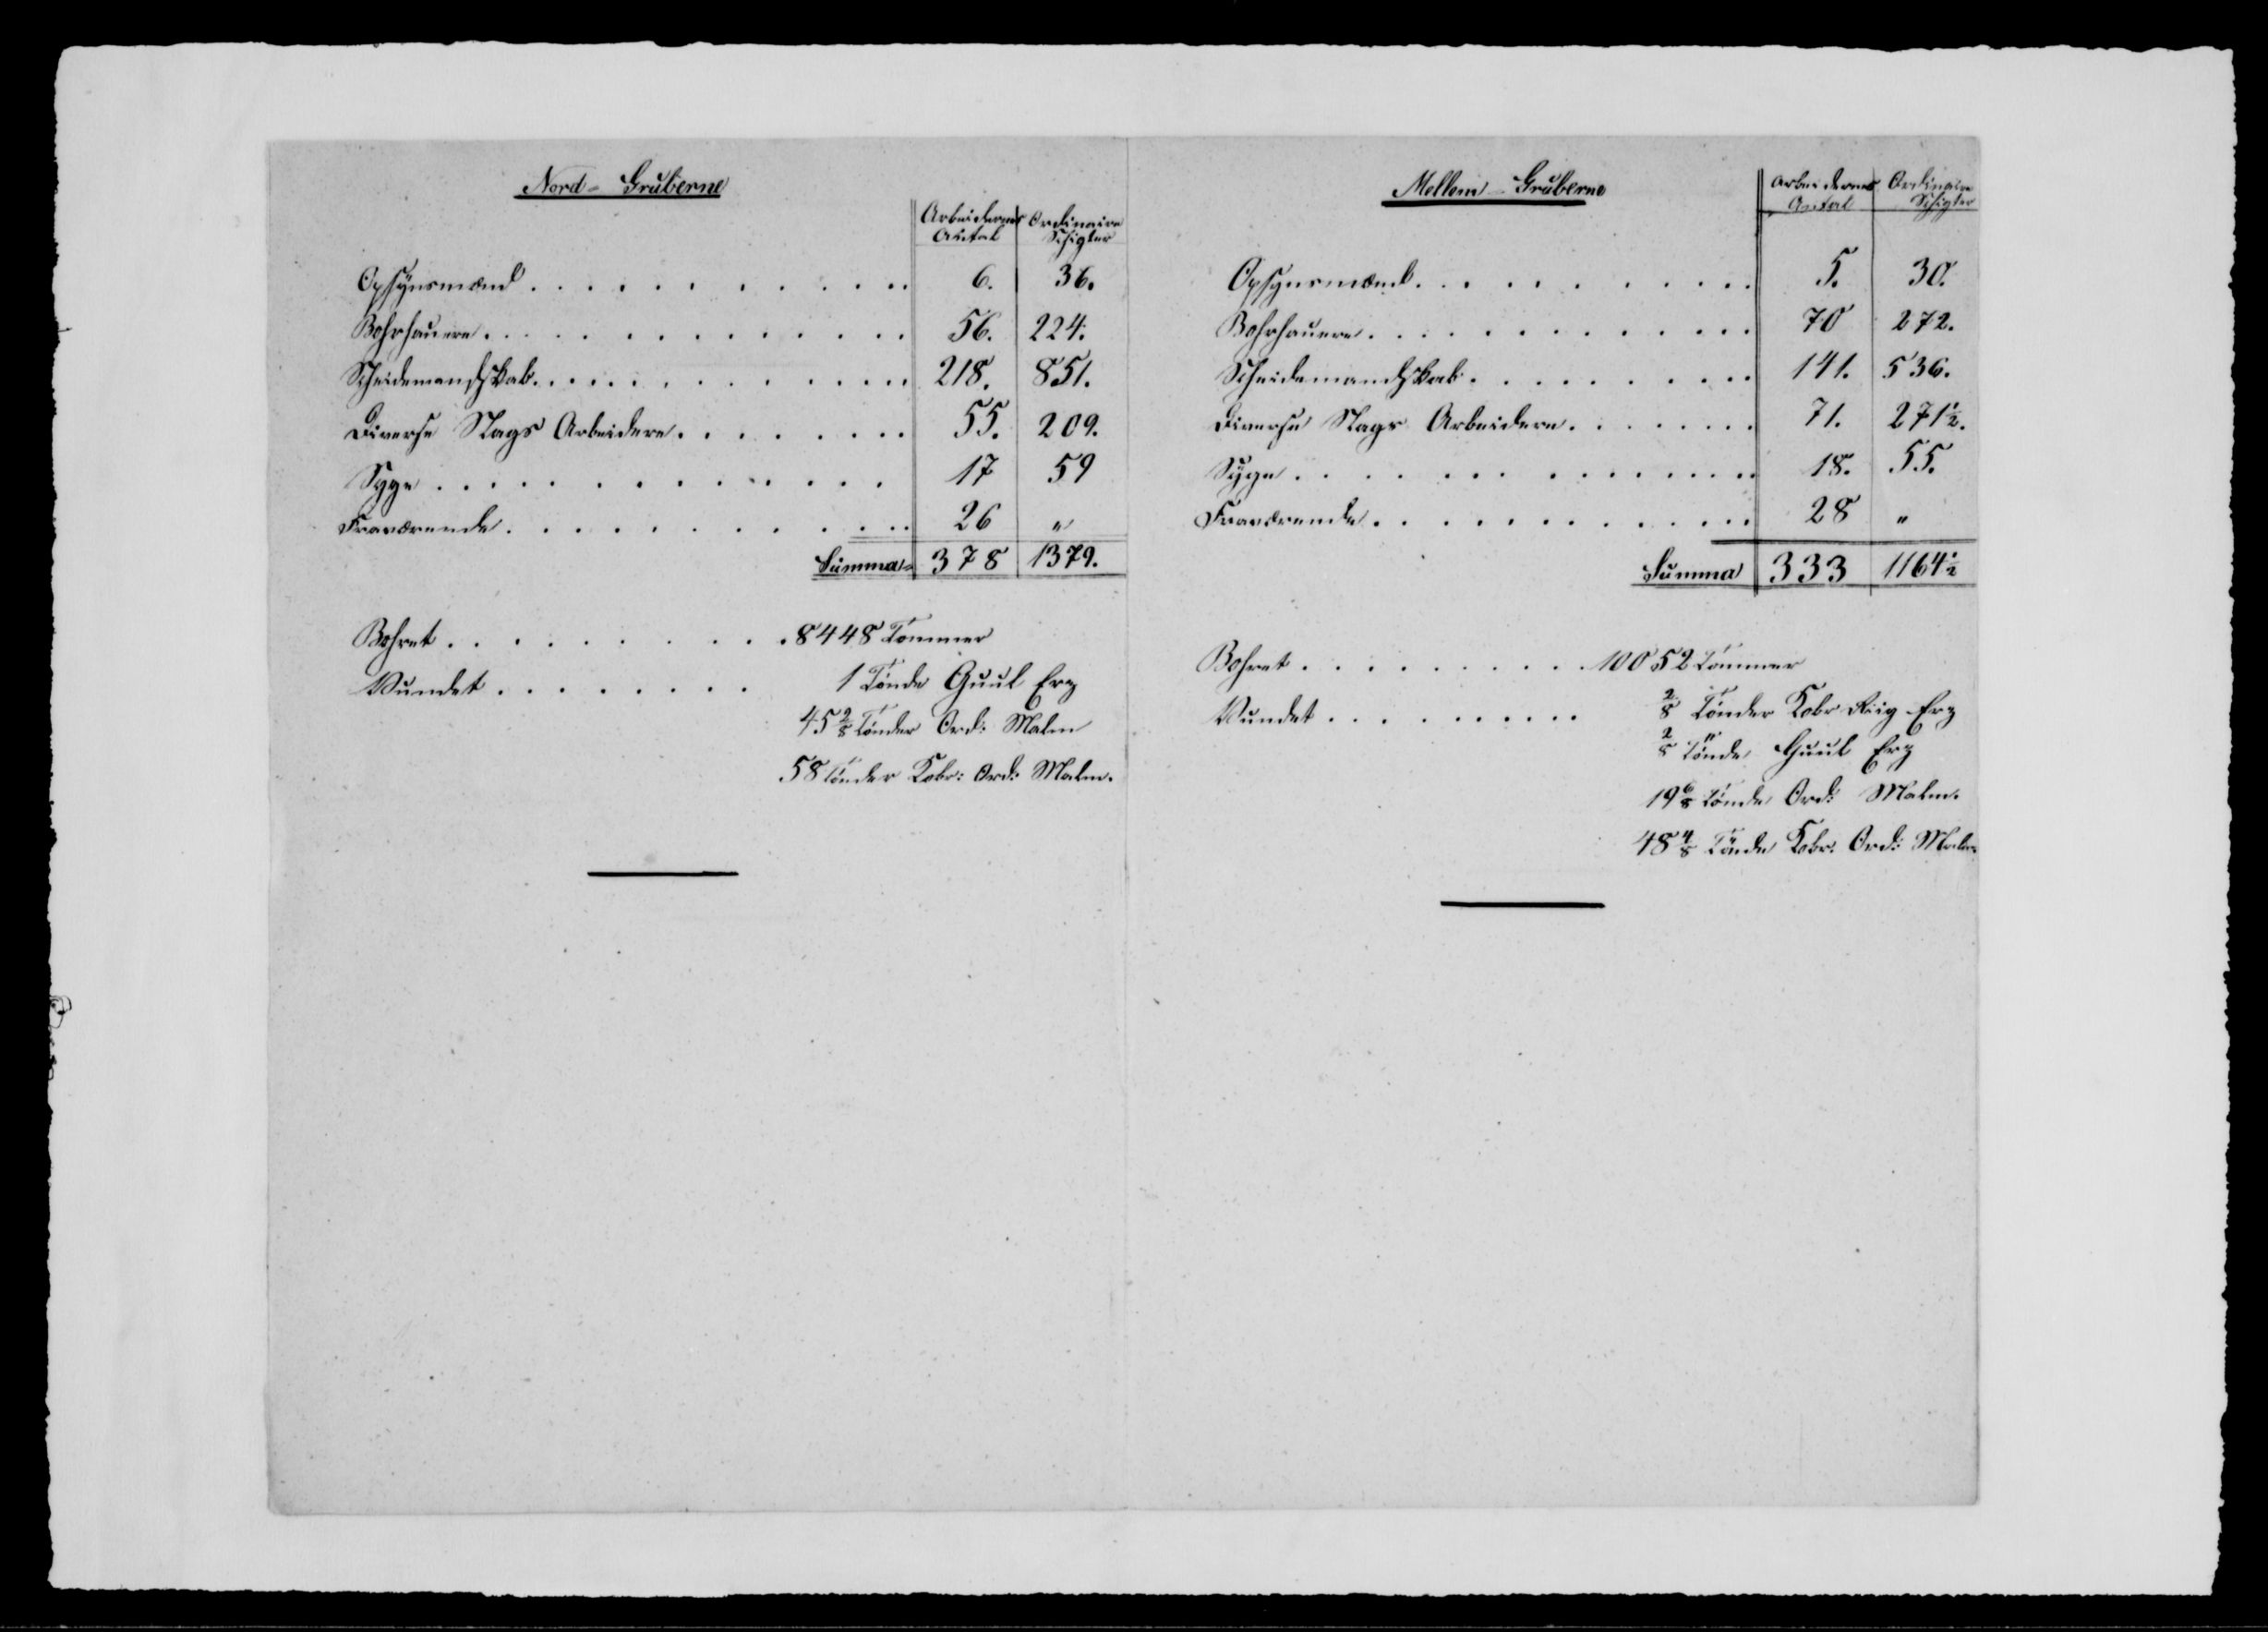 Nord-Gruberne
Arbeidernes Antal | Ordinaire Schigter
Opsÿnsmænd . . . . . . . . . . . . 6. 36.
Bohrhauere . . . . . . . . . . . . 56. 224.
Scheidemandskab . . . . . . . . . . . . 218. 851.
Diverse Slags Arbeidere . . . . . . . 55. 209.
Syge . . . . . . . . . . . . 17 59
Fraværende . . . . . . . . . . . . 26 "
Summa= 378 1379.
Bohret . . . . . . . . . . 8448 Tommer
Vundet . . . . . . . . 1 Tönde Guul Erz
45 2/8 Tönder Ord: Malm
58 Tönder Kobr: Ord: Malm.
Mellem-Gruberne
Arbeidernes Antal | Ordinaire Schigter
Opsynsmænd . . . . . . . . . . . 5. 30.
Bohrhauere . . . . . . . . . . . . 70 272.
Scheidemandskab . . . . . . . . . . 141. 536.
Diverse Slags Arbeidere . . . . . . . 71. 271 1/2.
Syge . . . . . . . . . . . . . 18. 55.
Fraværende . . . . . . . . . . . . 28 "
Summa 333 1164 1/2
Bohret . . . . . . . . . . 10052 Tommer
Vundet . . . . . . . . . 2/8 Tönder Kobr Riig Erz
2/8 Tönde Guul Erz
19 6/8 Tönde Ord: Malm.
48 4/8 Tönde Kobr: Ord: Malm.